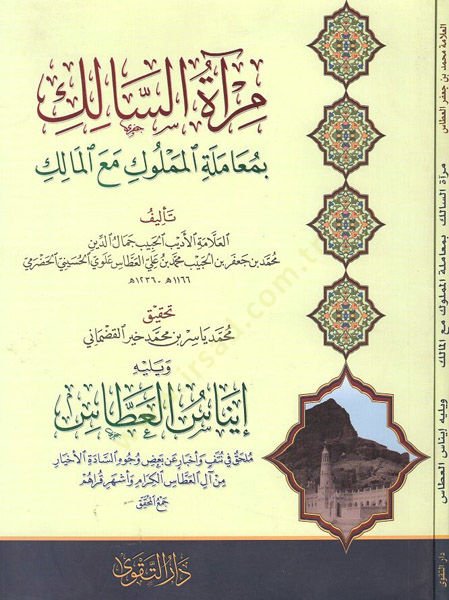 مِرآةُ السَّالِكِ
بِمُعَامَلَةِ المَمْلُوكِ مَعَ المَالِكِ
تَأليفُ
العَلَّامَةِ الأَدِيبِ الحَبِيبِ جَمَالِ الدِّينِ
مُحَمَّد بْن جَعْفَر بْنِ الحَبِيبْ مُحَمَّد بْن عَلِيّ العَطَّاس عَلَوِيّ الحُسَيْنِيّ الحَضْرَمِيّ
١١٦٦هـ - ١٢٣٦هـ
تحقيق
مُحَمَّد يَاسِر بْن مُحَمَّد خَيْر القَضْمَانِي
وَيَلِيهِ
إِينَاسُ العَطَّاسِ
مُلْحَقٌ فِي نُتَفٍ وَأَخْبَارٍ عَنْ بَعْضِ وُجُوهِ السَّادَةِ الأَخْيَارِ
مِنْ آلِ العَطَّاسِ الكِرَامِ وَأَشْهَرِ قُرَاهُمْ
جَمْعُ المُحَقِّقِ
دَارُ التَّقْوَى
العلامة محمد بن جعفر العطاس
مرآة السالك بمعاملة المملوك مع المالك
ويليه إيناس العطاس
دار التقوى